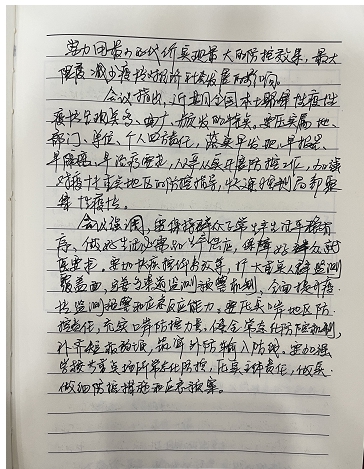 努力用最小的代价实现最大的防控效果，最大
限度减少疫情对经济社会发展的影响。
会议指出，近期全国本土聚集性疫情
疫情呈现点多、面广、频发的特点。要压实属地、
部门、单位、个人四方责任，落实早发现、早报告、
早隔离、早治疗要求，从严从实开展防控工作，加强
对疫情重点地区的防控指导，快速控制局部聚
集性疫情。
会议强调，要保持群众正常生产生活平稳有
序，做好生活必需品生产供应，保障好群众就
医需求。要加快疫情处置效率，扩大重点人群监测
覆盖面，完善多渠道监测预警机制，全面提升疫
情监测预警和应急反应能力。要压实口岸地区防
控责任，充实口岸防控力量，健全常态化防控机制，
补齐短板弱项，筑牢外防输入防线。要加强
学校等重点场所常态化防控，压实主体责任，做实
做细防控措施和应急预案。